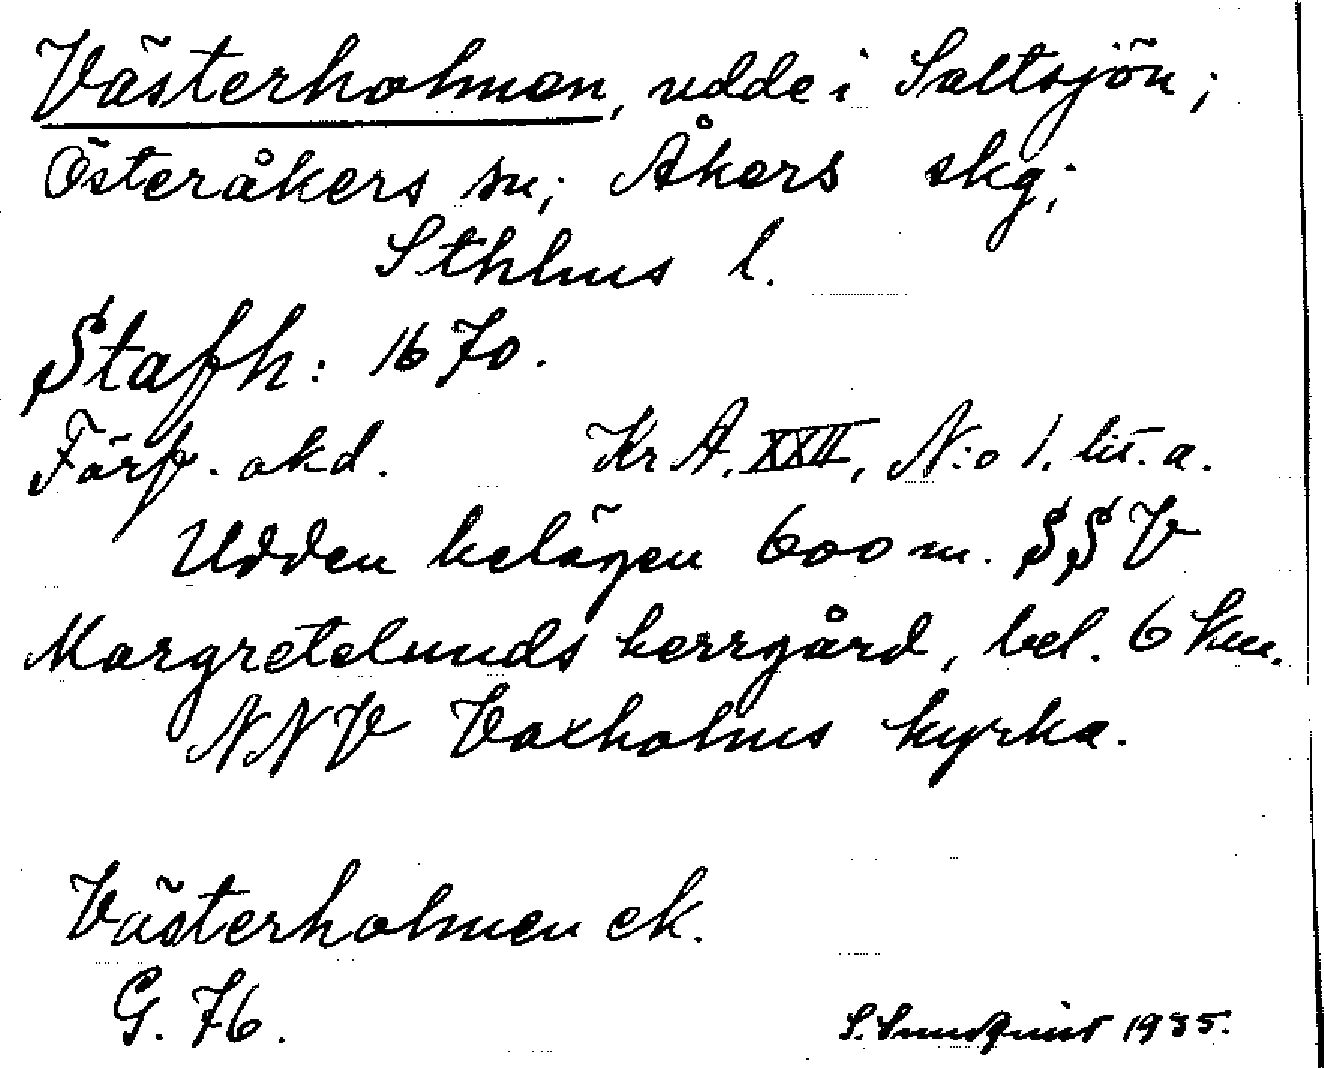 Västerholmen, udde i Saltsjön;
Österåkers sn; Åkers skg;
Sthlms l.
Stafh: 1670.
Förp. akd. Kr A. XXII, N:o 1. lit. a.
Udden belägen 600 m. SSV
Margretelunds herrgård, bel. 6 km.
NNV Vaxholms kyrka.
Västerholmen ek.
G. 76.
S. Lundquist 1935.